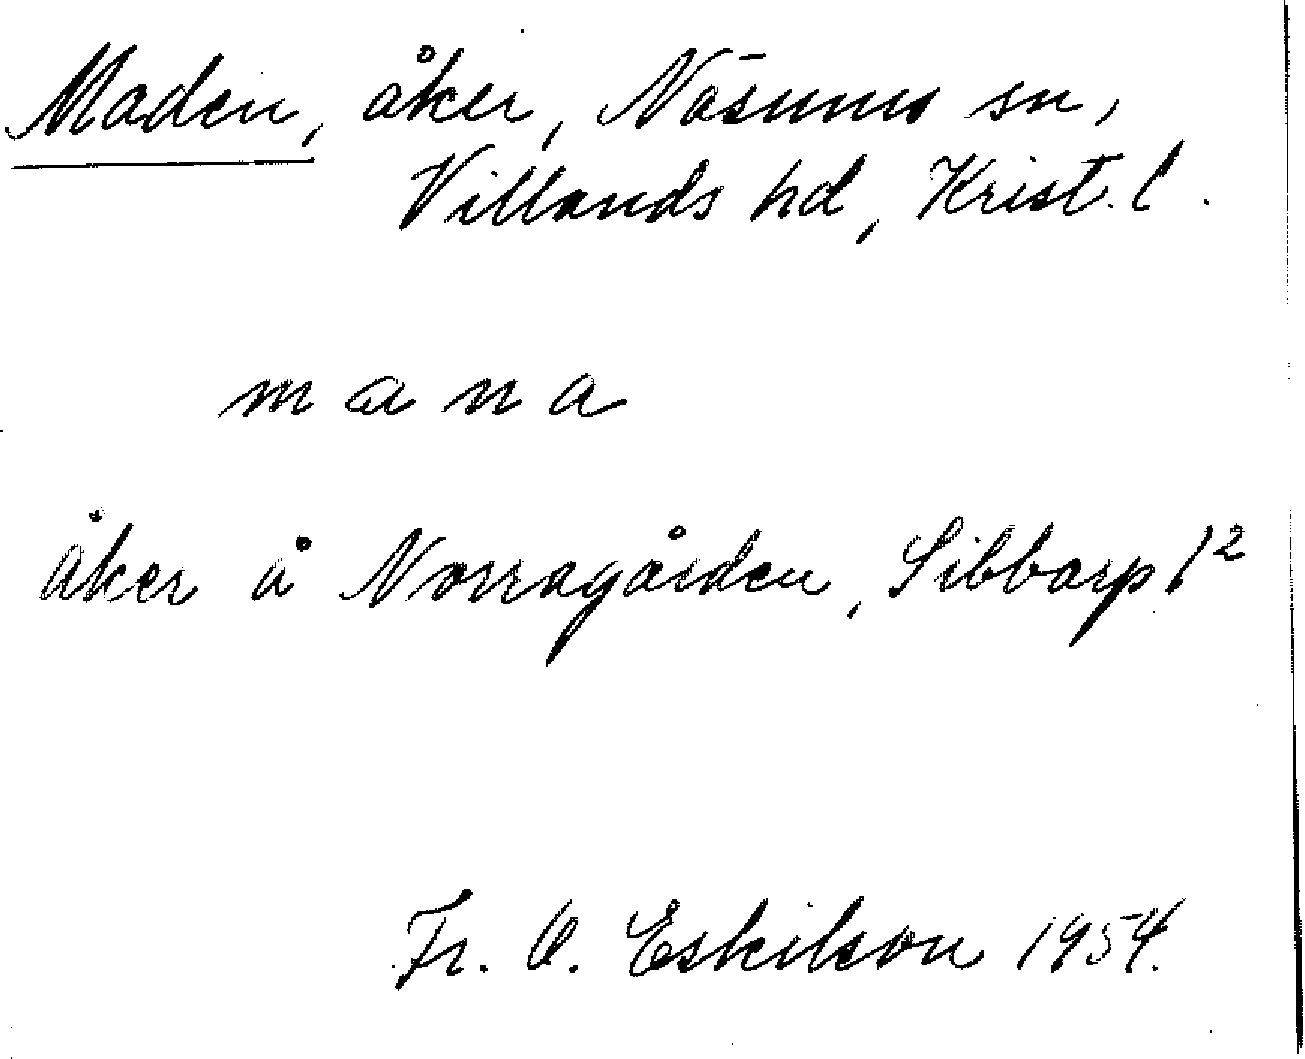 Maden, åker, Näsums sn,
Villands hd, Krist. l.
m a n a
åker å Norregården, Sibbarp 1²
Fr. O. Eskilson 1954.